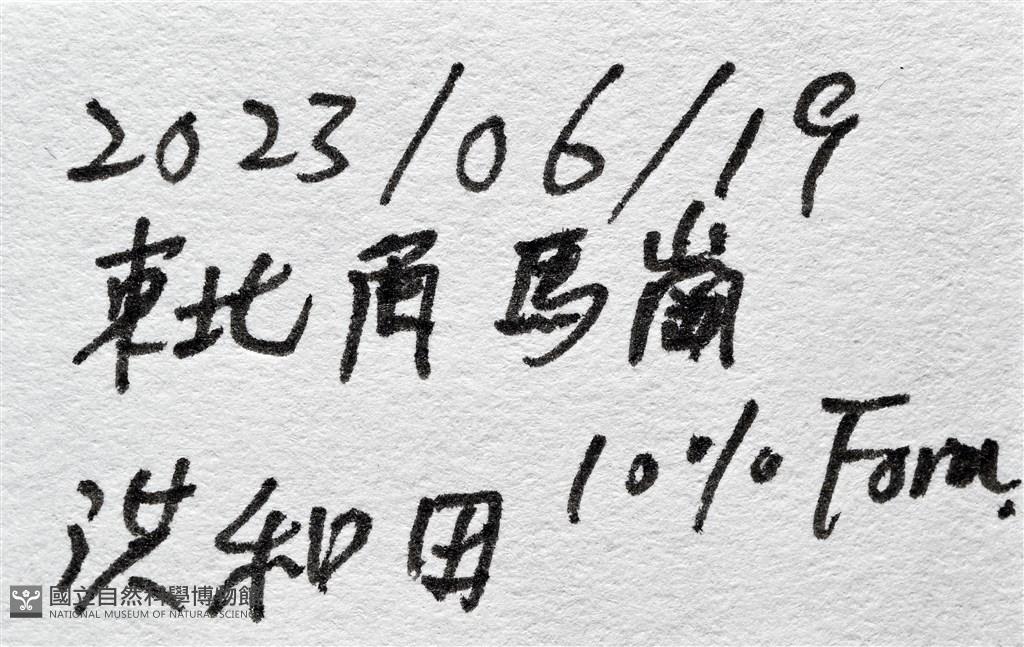 2023/06/19
東北角馬崗
10% Form.
洪和田
國立自然科學博物館
NATIONAL MUSEUM OF NATURAL SCIENCE